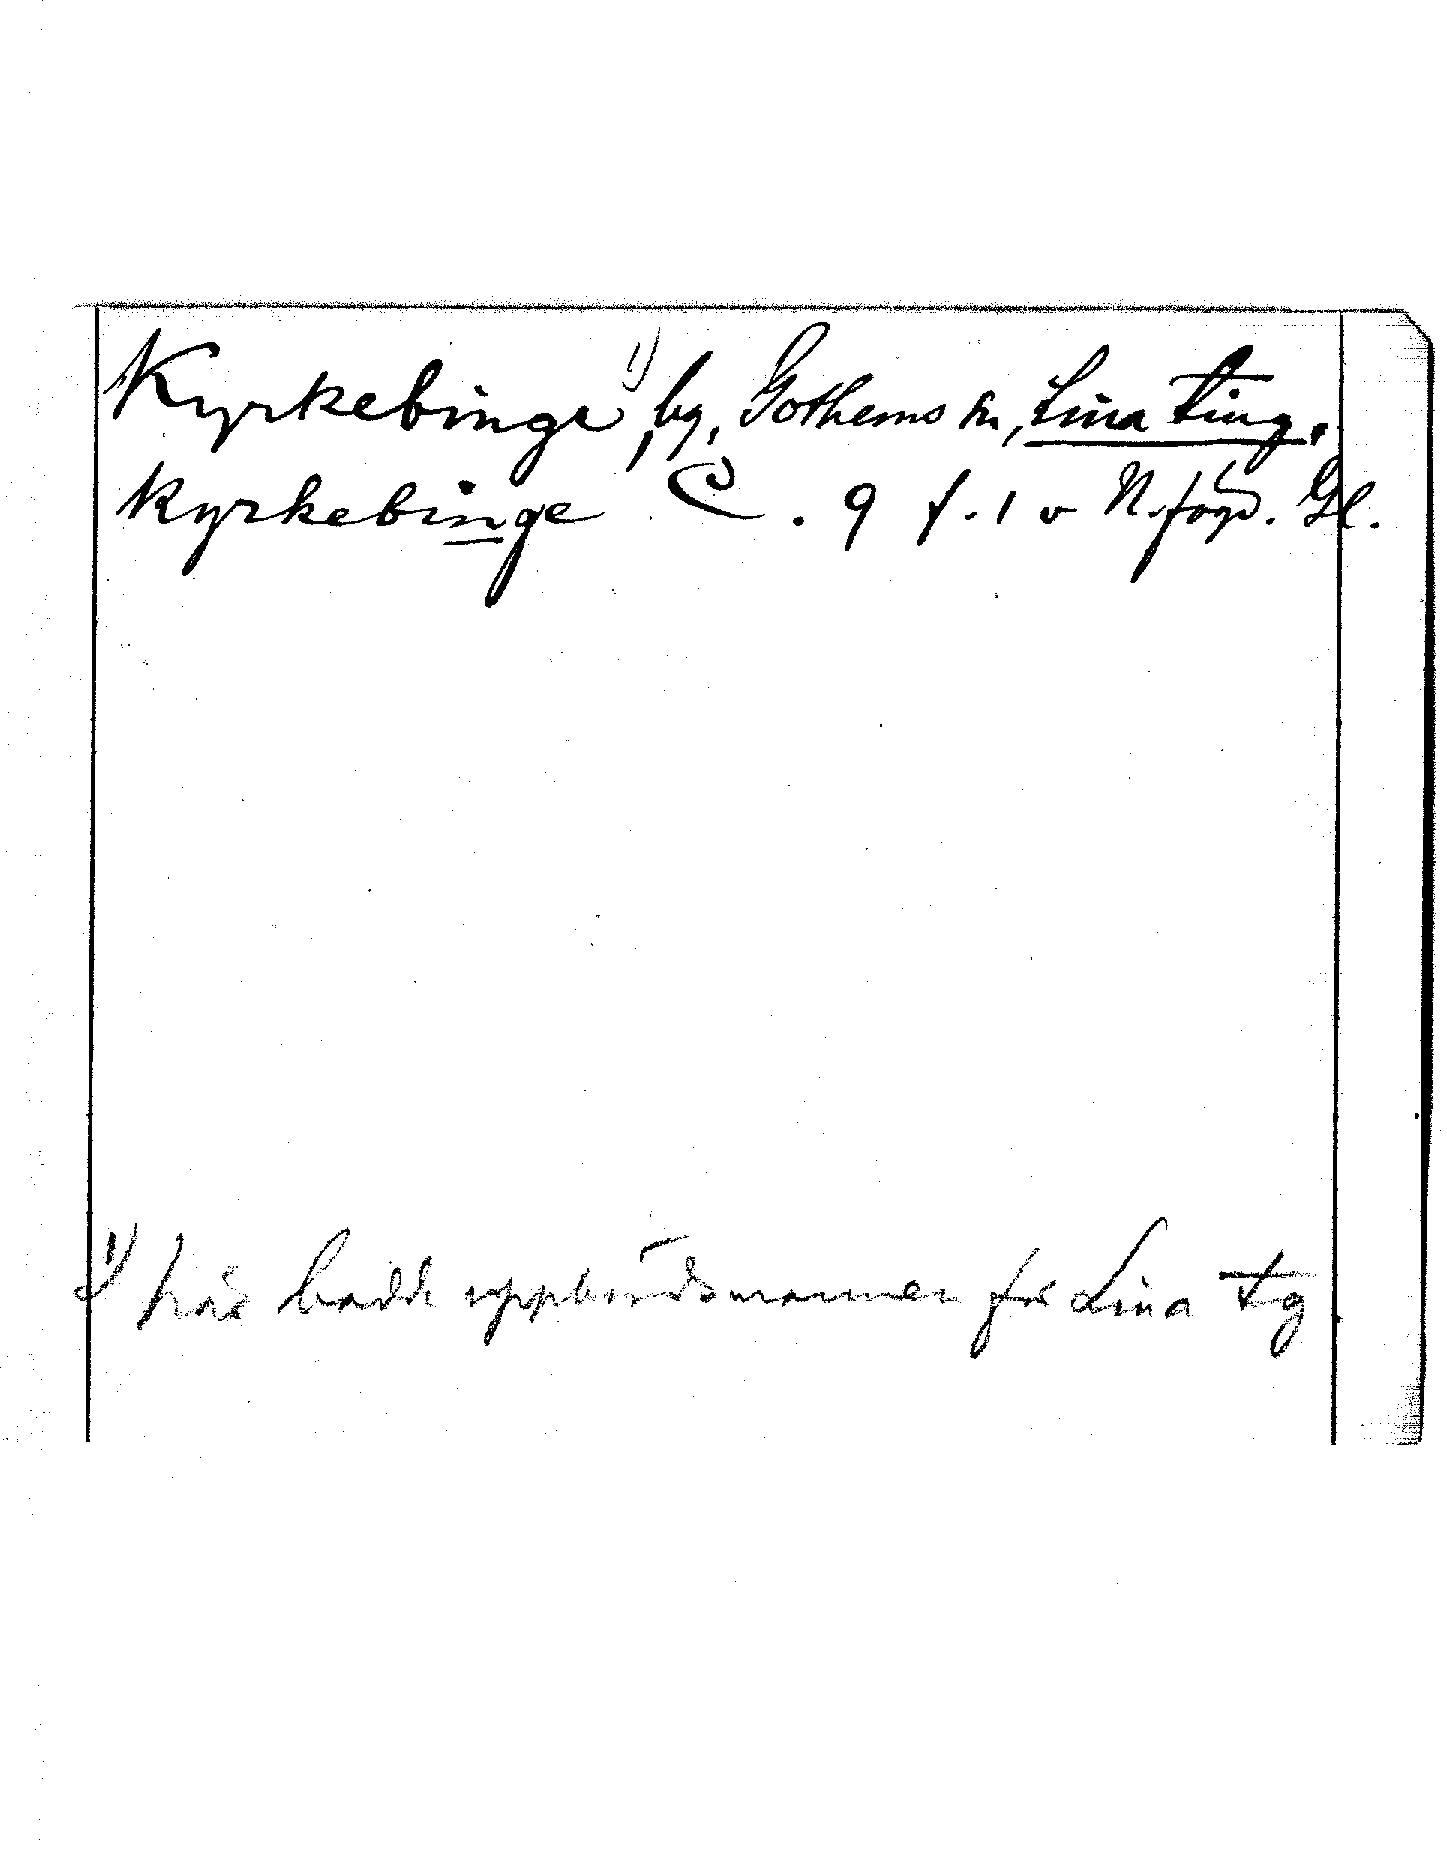 Kyrkebinge ¹), by, Gothems sn, Lina ting.
Kyrkebinge C. 9 f. 1 v N. fögd. Gl.
¹) här bodde uppbördsmannen för Lina tg